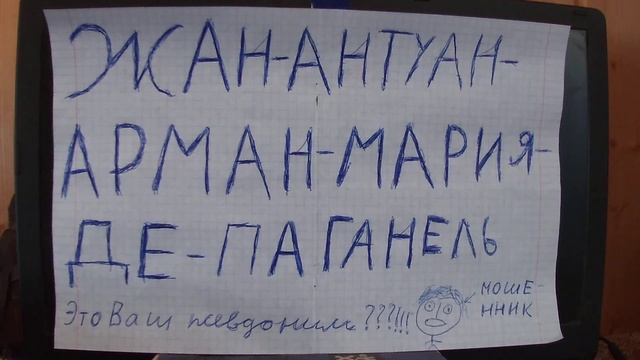 ЖАН-АНТУАН-
АРМАН-МАРИЯ-
ДЕ-ПАГАНЕЛЬ
Это Ваш псевдоним???!!!
МОШЕ-
ННИК